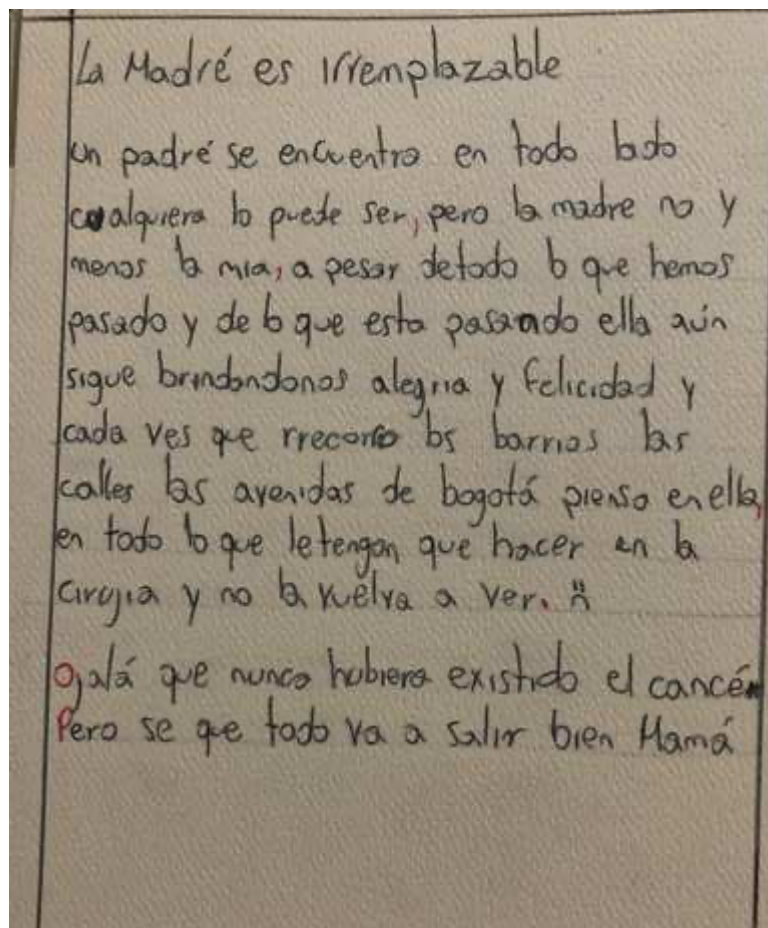 La Madré es irremplazable
Un padré se encuentra en todo lado
cualquiera lo puede ser, pero la madre no y
menos la mia, a pesar detodo lo que hemos
pasado y de lo que esta pasando ella aún
sigue brindandonos alegria y felicidad y
cada ves que rrecorro los barrios las
calles las avenidas de bogotá pienso en ella,
en todo lo que letengan que hacer en la
cirugia y no la vuelva a ver. :(
Ojalá que nunca hubiera existido el cancér
Pero se que todo va a salir bien Mamá